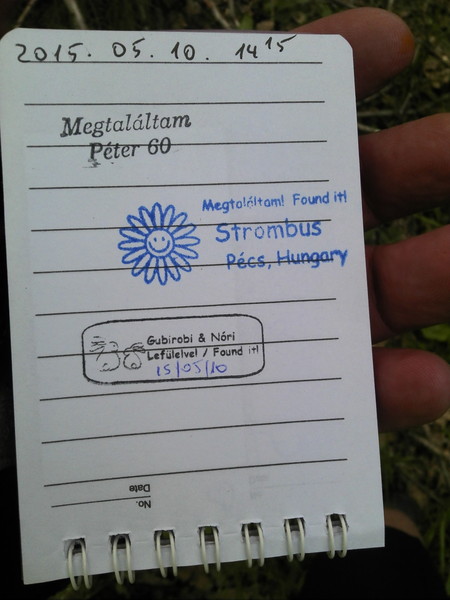 2015. 05. 10. 14 15
Megtaláltam
Péter 60
Megtaláltam! Found it!
Strombus
Pécs, Hungary
Gubirobi & Nóri
Lefülelve! / Found it!
15/05/10
Date
No.